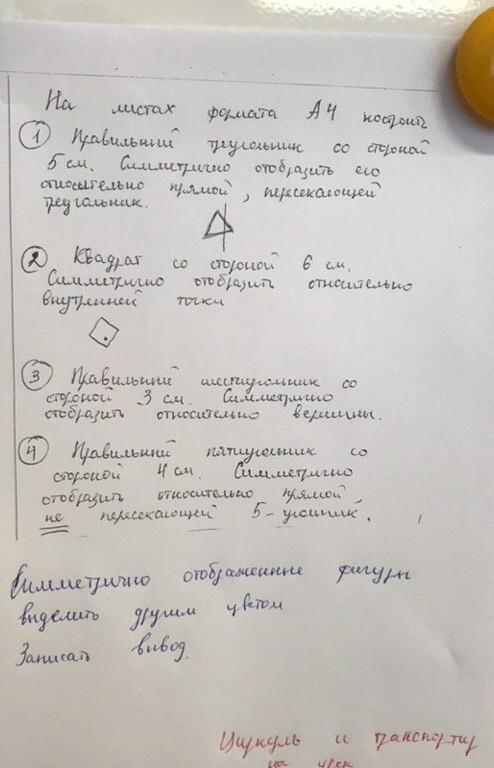 На листах формата А4 построить
① Правильный треугольник со стороной
5 см. Симметрично отобразить его
относительно прямой, пересекающей
треугольник.
② Квадрат со стороной 6 см.
Симметрично отобразить относительно
внутренней точки
③ Правильный шестиугольник со
стороной 3 см. Симметрично
отобразить относительно вершины.
④ Правильний пятиугольник со
стороной 4 см. Симметрично
отобразить относительно прямой
не пересекающей 5-угольник.
Симметрично отображенные фигуры
выделить другим цветом
Записать вывод.
Циркуль и транспортир
на урок